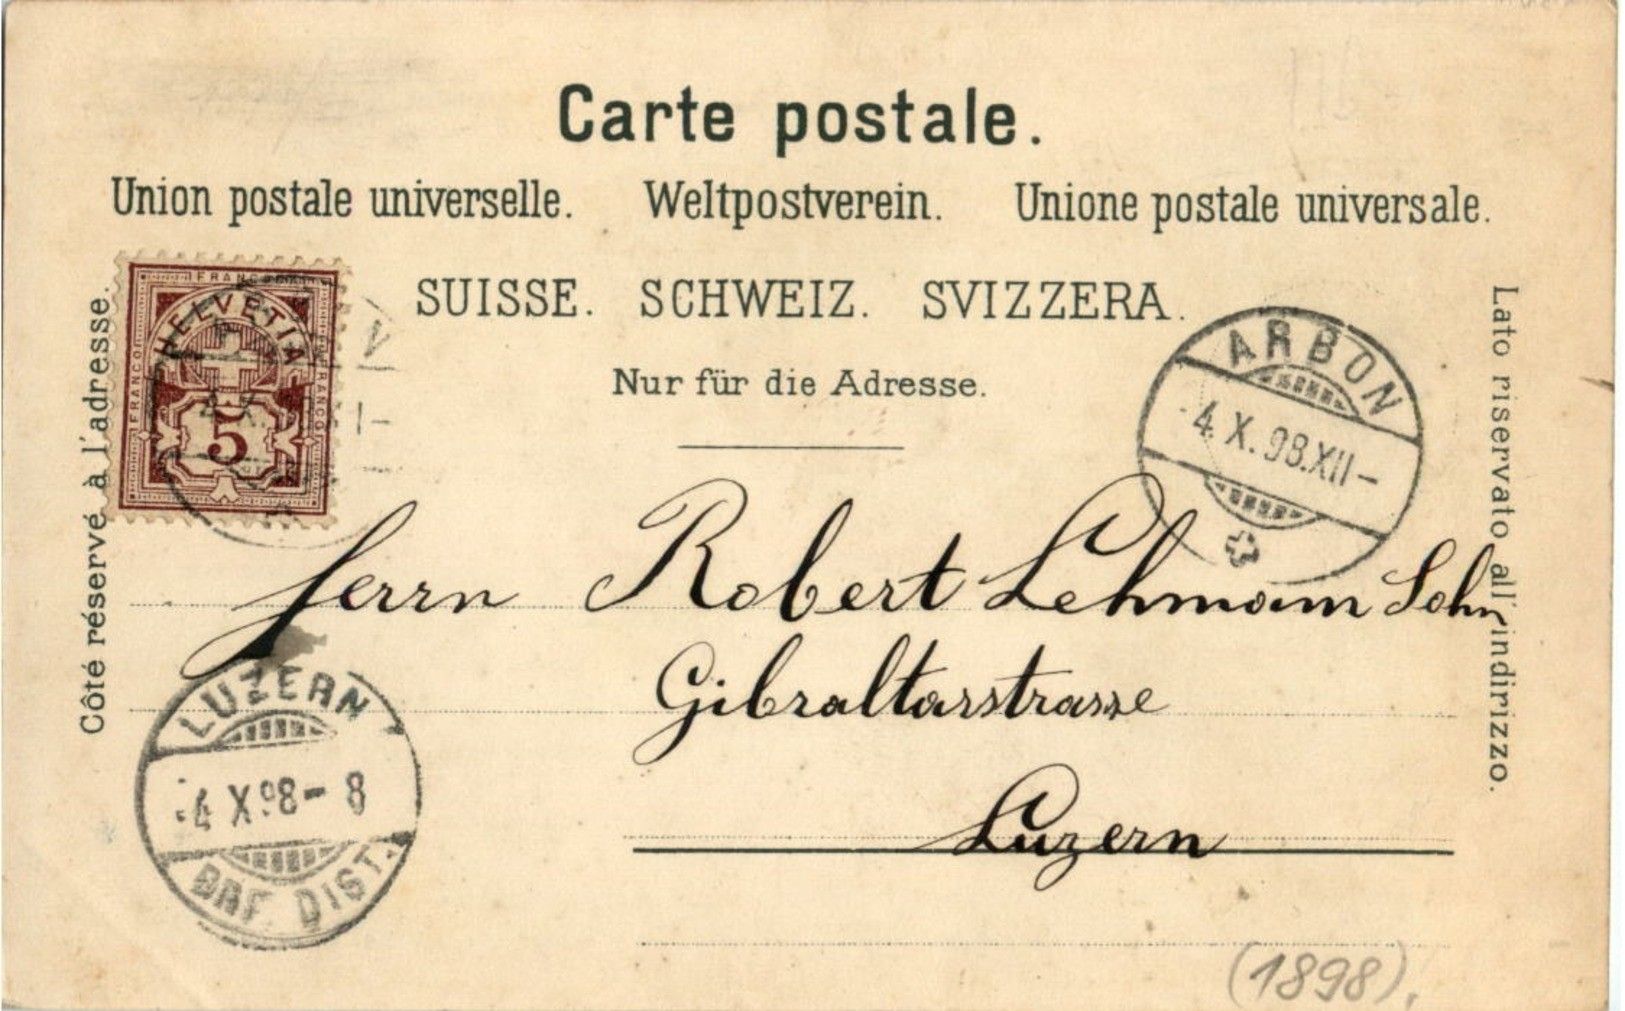 Carte postale.
Union postale universelle. Weltpostverein. Unione postale universale.
SUISSE. SCHWEIZ. SVIZZERA.
Nur für die Adresse.
Côté réservé à l'adresse.
Lato riservato all'indirizzo.
FRANCO
HELVETIA
FRANCO
FRANCO
5
ARBON
4.X.98.XII-
Herrn Robert Lehmann Sohn
Gibraltarstrasse
Luzern
LUZERN
-4 X 98-8
BRF. DIST.
(1898).